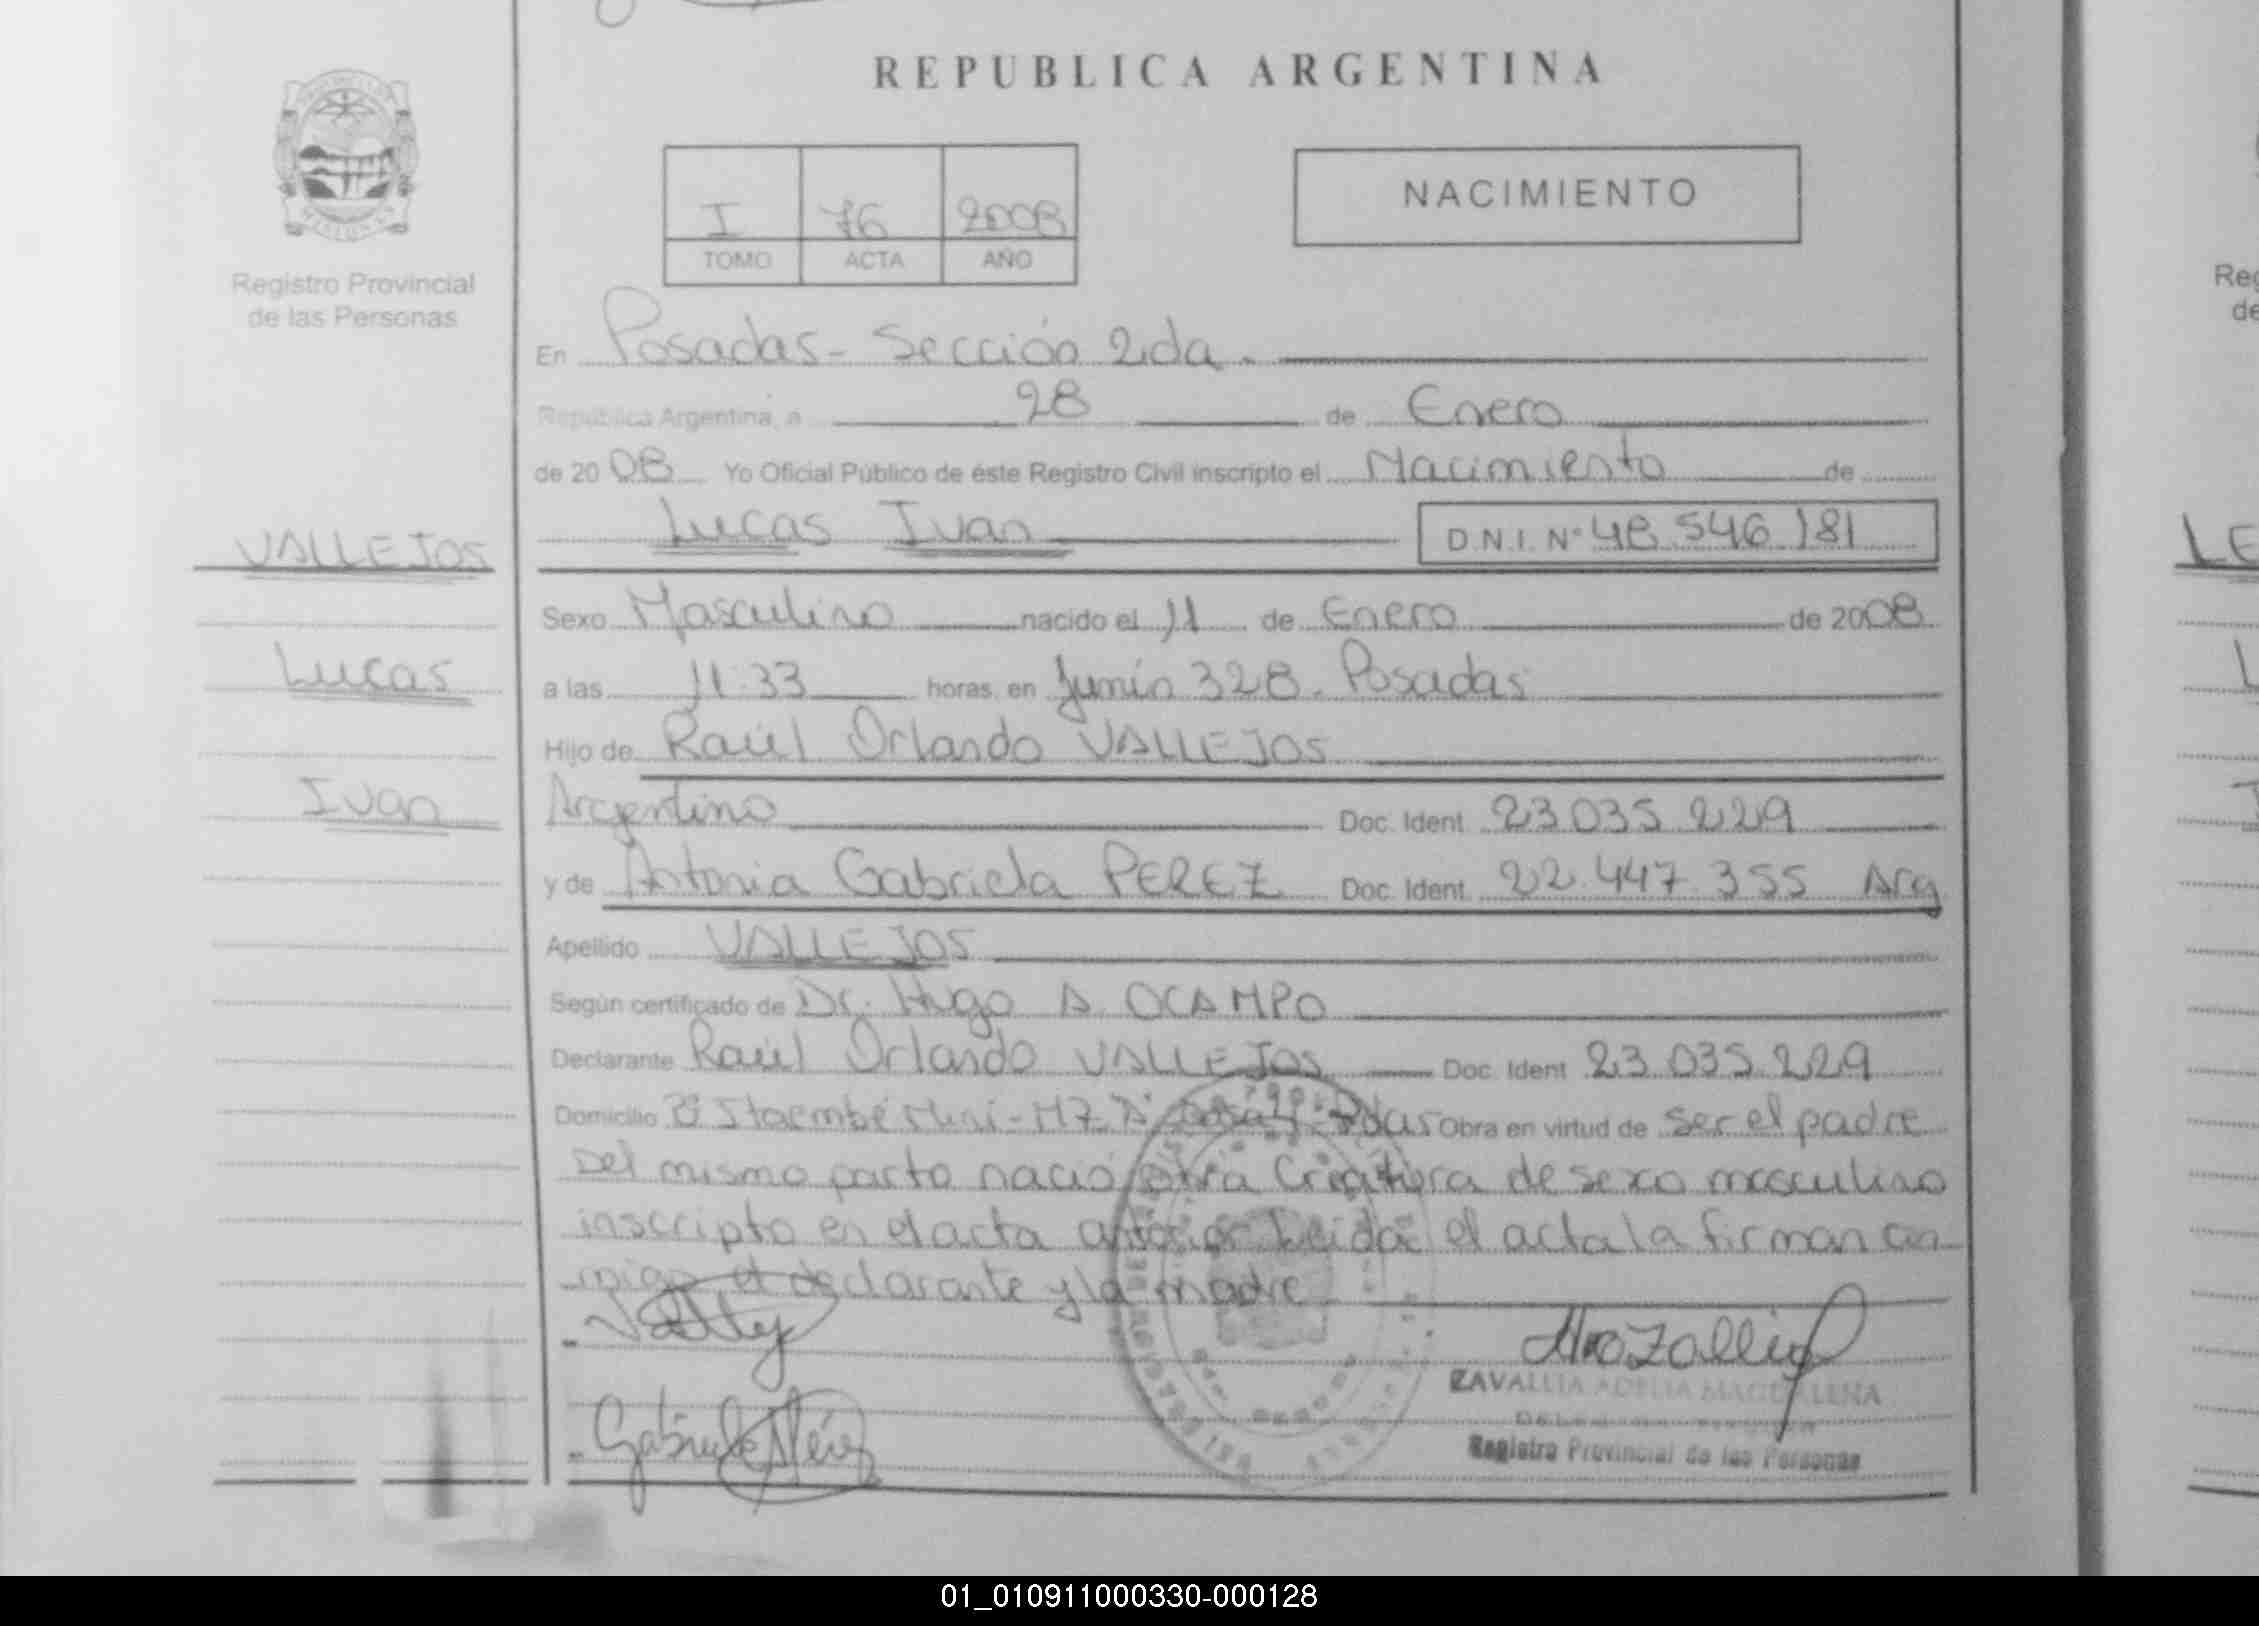 REPUBLICA ARGENTINA
I 76 2008
TOMO ACTA AÑO
NACIMIENTO
Registro Provincial
de las Personas
En Posadas - Sección 2da.
República Argentina, a 28 de Enero
de 2008 Yo Oficial Público de éste Registro Civil inscripto el Nacimiento de
Lucas Ivan D.N.I. Nº 48.546.181
VALLEJOS
Lucas
Ivan
Sexo Masculino nacido el 11 de Enero de 2008
a las 11:33 horas, en Junín 328. Posadas
Hijo de Raúl Orlando VALLEJOS
Argentino Doc. Ident. 23.035.229
y de Antonia Gabriela PEREZ Doc. Ident. 22.447.355 Arg
Apellido VALLEJOS
Según certificado de Dr. Hugo A. OCAMPO
Declarante Raúl Orlando VALLEJOS Doc. Ident. 23.035.229
Domicilio Bº Itaembé Miní - MZ. A Pdas Obra en virtud de ser el padre
Del mismo parto nació otra Criatura de sexo masculino
inscripto en el acta anterior Leida el acta la firman con
migo el declarante y la madre
Gabriela Pérez
ZAVALLIA ADELIA MAGDALENA
Registro Provincial de las Personas
Reg
de
LE
L
I
01_010911000330-000128